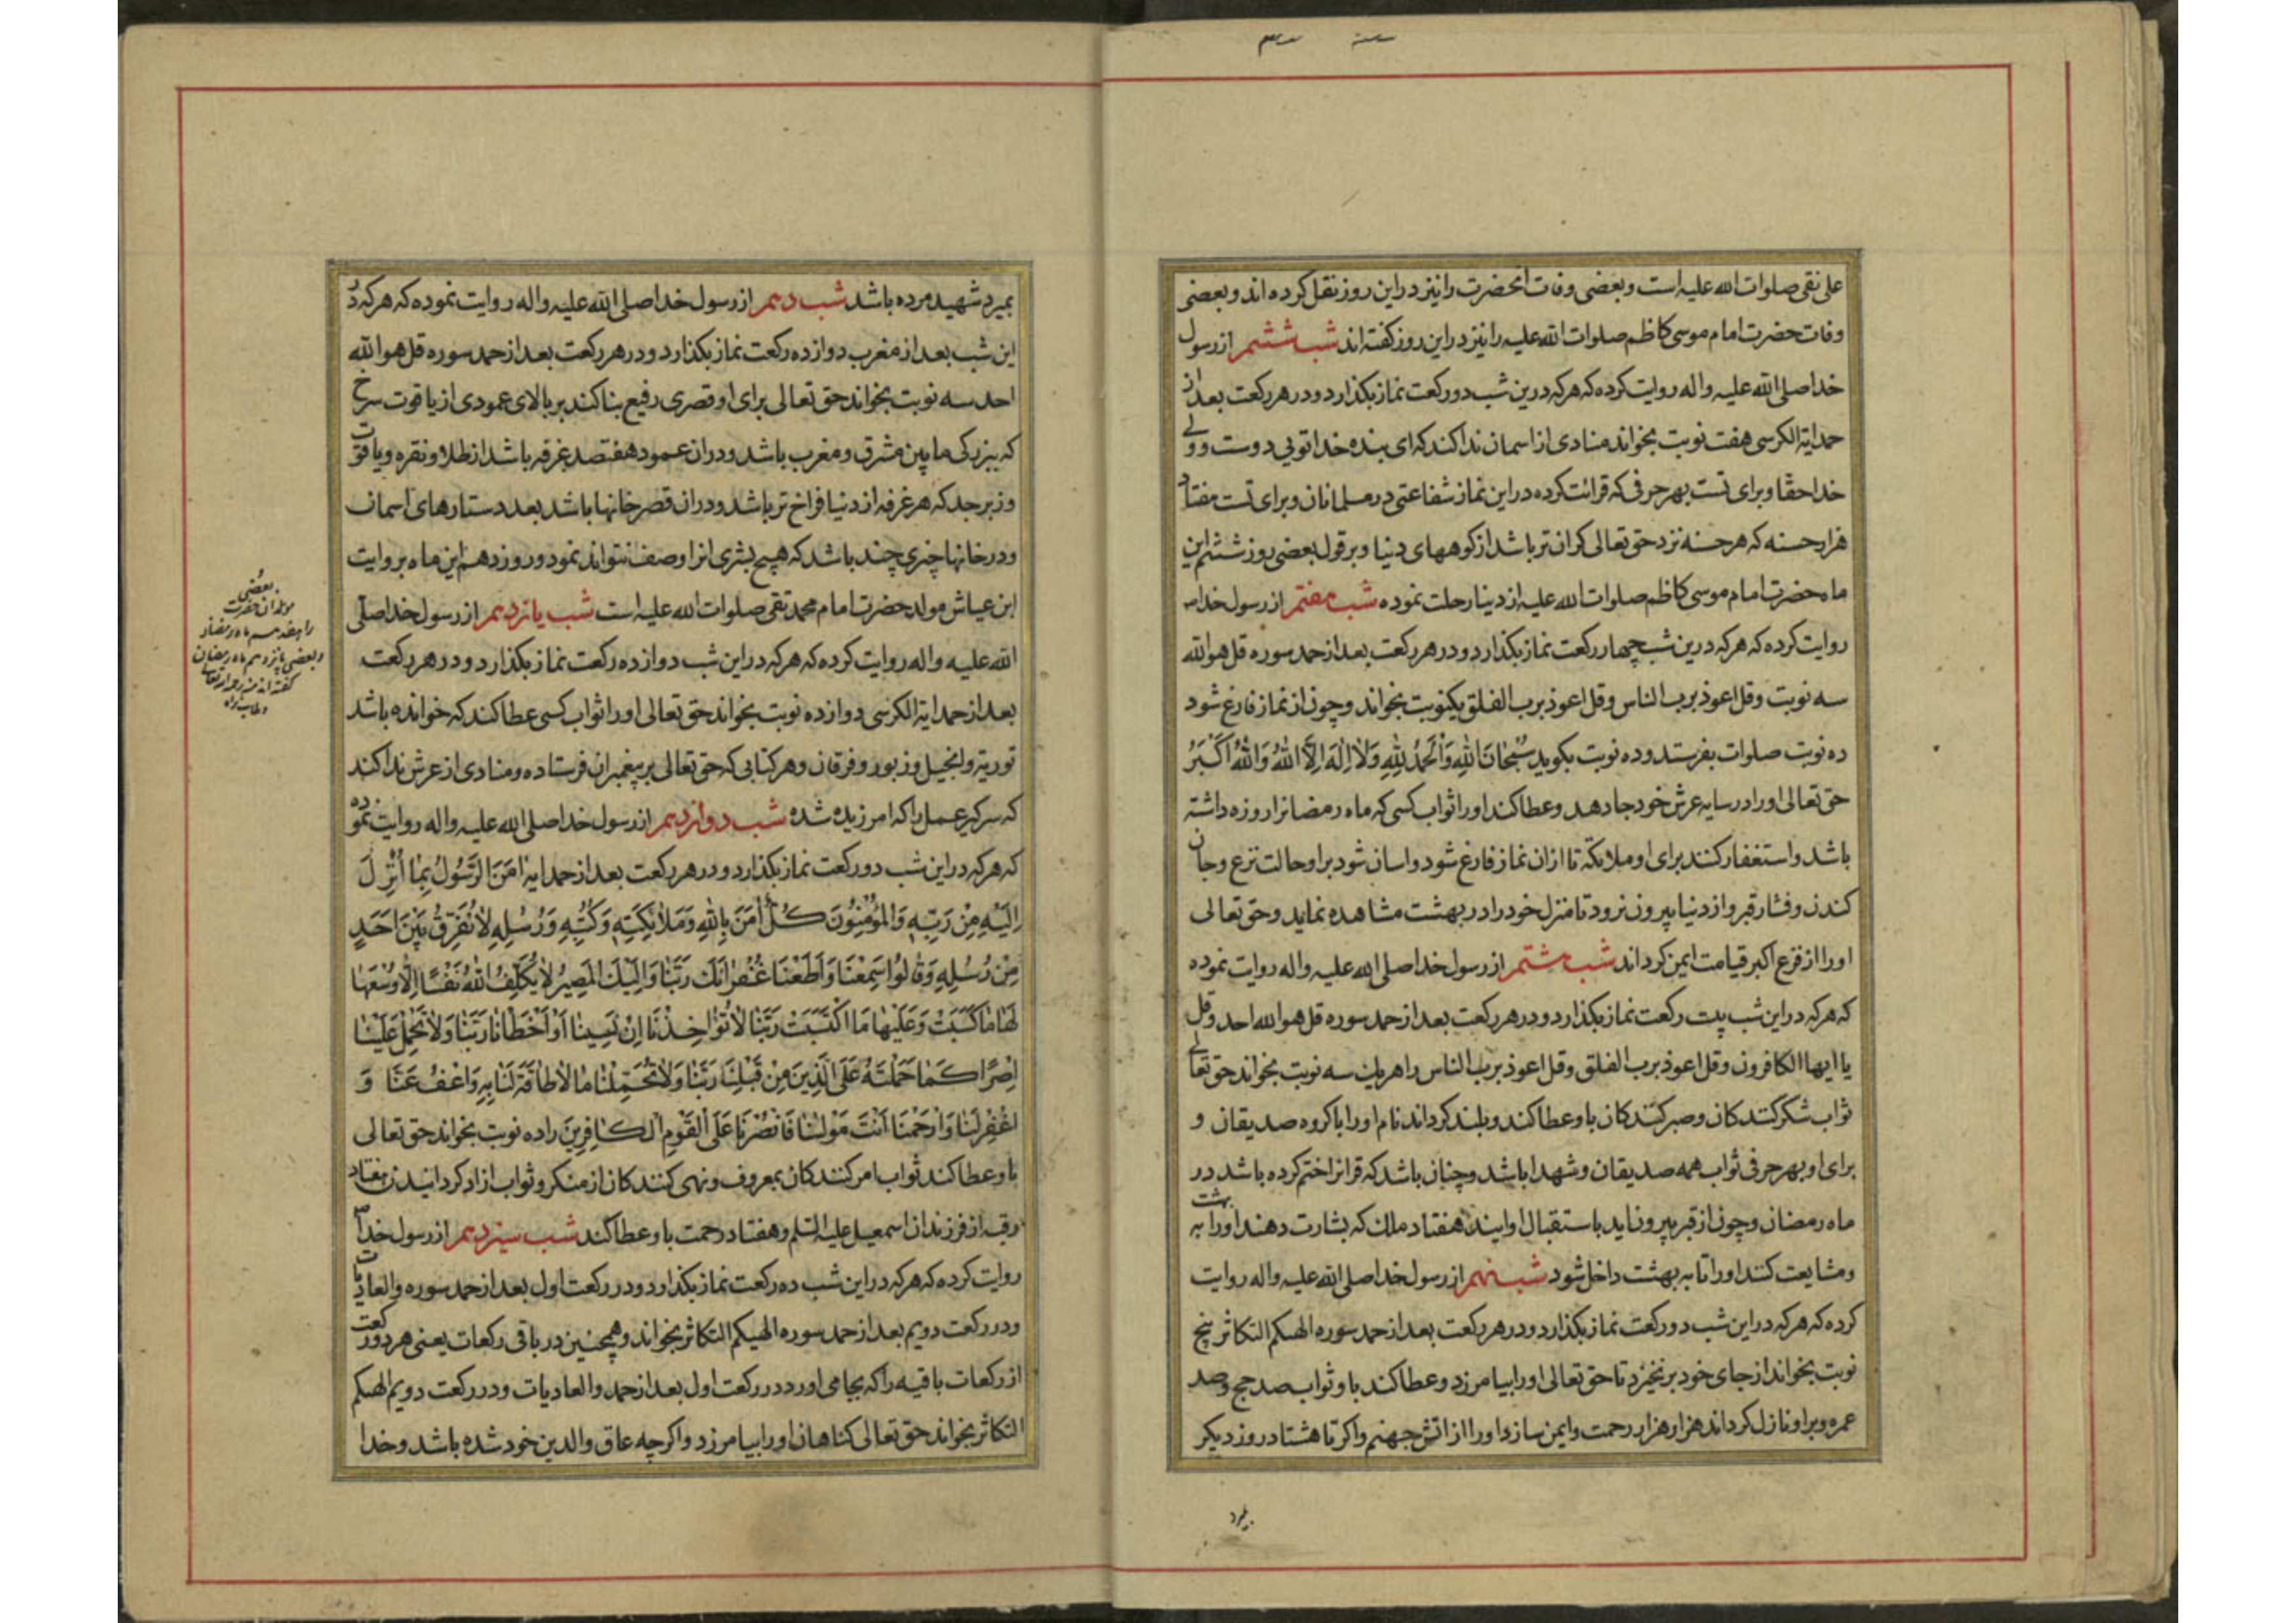 علی نقی صلوات الله علیه است و بعضی وفات انحضرت را نیز در این روز نقل کرده اند و بعضی
وفات حضرت امام موسی کاظم صلوات الله علیه را نیز در این روز کفته اند شب ششم از رسول
خدا صلی الله علیه واله روایت کرده که هر که درین شب دو رکعت نماز بکذارد و در هر رکعت بعد از
حمد ایة الکرسی هفت نوبت بخواند منادی از اسمان ندا کند که ای بنده خدا تویی دوست و ولی
خدا حقا و برای تست بهر حرفی که قرائت کرده در این نماز شفاعتی در مسلمانان و برای تست هفتاد
هزار حسنه که هر حسنه نزد حق تعالی کران تر باشد از کوههای دنیا و بر قول بعضی روز ششم این
ماه حضرت امام موسی کاظم صلوات الله علیه از دینا رحلت نموده شب هفتم از رسول خدا ص
روایت کرده که هر که درین شب چهار رکعت نماز بکذارد و در هر رکعت بعد از حمد سوره قل هو الله
سه نوبت وقل اعوذ برب الناس وقل اعوذ برب الفلق یکنوبت بخواند و چون از نماز فارغ شود
ده نوبت صلوات بفرستد و ده نوبت بکوید سُبْحانَ اللهِ وَالْحَمْدُ لِلّهِ وَلا اِلهَ اِلاَّ اللهُ وَاللهُ اَکْبَرُ
حق تعالی او را در سایه عرش خود جا دهد و عطا کند او را ثواب کسی که ماه رمضانرا روزه داشته
باشد و استغفار کنند برای او ملائکه تا از ان نماز فارغ شود و اسان شود بر او حالت نزع و جان
کندن و فشار قبر و از دنیا بیرون نرود تا منزل خود را در بهشت مشاهده نماید و حق تعالی
او را از فزع اکبر قیامت ایمن کرداند شب هشتم از رسول خدا صلی الله علیه واله روایت نموده
که هر که در این شب بیست رکعت نماز بکذارد و در هر رکعت بعد از حمد سوره قل هو الله احد و قل
یا ایها الکافرون وقل اعوذ برب الفلق وقل اعوذ برب الناس را هریک سه نوبت بخواند حق تعالی
ثواب شکر کنندکان و صبر کنندکان باو عطا کند و بلند کرداند نام او را با کروه صدیقان و
برای او بهر حرفی ثواب همه صدیقان و شهدا باشد و چنان باشد که قرانرا ختم کرده باشد در
ماه رمضان و چون از قبر بیرون اید باستقبال او ایند هفتاد ملک که بشارت دهند او را به بهشت
و مشایعت کنند او را تا به بهشت داخل شود شب نهم از رسول خدا صلی الله علیه واله روایت
کرده که هر که در این شب دو رکعت نماز بکذارد و در هر رکعت بعد از حمد سوره الهیکم التکاثر پنج
نوبت بخواند از جای خود بر نخیزد تا حق تعالی او را بیامرزد و عطا کند باو ثواب صد حج و صد
عمره و بر او نازل کرداند هزار هزار رحمت و ایمن سازد او را از اتش جهنم و اکر تا هشتاد روز دیکر
بمیرد
بمیرد شهید مرده باشد شب دهم از رسول خدا صلی الله علیه واله روایت نموده که هر که در
این شب بعد از مغرب دوازده رکعت نماز بکذارد و در هر رکعت بعد از حمد سوره قل هو الله
احد سه نوبت بخواند حق تعالی برای او قصری رفیع بنا کند بر بالای عمودی از یاقوت سرخ
که ببزرکی مابین مشرق و مغرب باشد و در ان عمود هفتصد غرفه باشد از طلا و نقره و یاقوت
و زبرجد که هر غرفه از دنیا فراخ تر باشد و در ان قصر خانها باشد بعدد ستارهای اسمان
و در خانها چیزی چند باشد که هیچ بشری انرا وصف نتواند نمود و روز دهم این ماه بروایت
ابن عیاش مولد حضرت امام محمد تقی صلوات الله علیه است شب یازدهم از رسول خدا صلی
الله علیه واله روایت کرده که هر که در این شب دوازده رکعت نماز بکذارد و در هر رکعت
بعد از حمد ایة الکرسی دوازده نوبت بخواند حق تعالی او را ثواب کسی عطا کند که خوانده باشد
توریة و انجیل و زبور و فرقان و هر کتابی که حق تعالی بر پیغمبران فرستاده و منادی از عرش ندا کند
که سر کیر عمل را که امرزیده شده شب دوازدهم از رسول خدا صلی الله علیه واله روایت نموده
که هر که در این شب دو رکعت نماز بکذارد و در هر رکعت بعد از حمد ایه امَنَ الرَّسُولُ بِما اُنْزِلَ
اِلَیْهِ مِنْ رَبِّهِ وَالْمُؤْمِنُونَ کُلٌّ امَنَ بِاللهِ وَمَلائِکَتِهِ وَکُتُبِهِ وَرُسُلِهِ لا نُفَرِّقُ بَیْنَ اَحَدٍ
مِنْ رُسُلِهِ وَقالُوا سَمِعْنا وَاَطَعْنا غُفْرانَكَ رَبَّنا وَاِلَیْكَ الْمَصیرُ لا یُکَلِّفُ اللهُ نَفْسًا اِلاّ وُسْعَها
لَها ما کَسَبَتْ وَعَلَیْها مَا اکْتَسَبَتْ رَبَّنا لا تُؤاخِذْنا اِنْ نَسینا اَوْ اَخْطَانا رَبَّنا وَلا تَحْمِلْ عَلَیْنا
اِصْرًا کَما حَمَلْتَهُ عَلَی الَّذینَ مِنْ قَبْلِنا رَبَّنا وَلا تُحَمِّلْنا ما لا طاقَةَ لَنا بِهِ وَاعْفُ عَنّا وَ
اغْفِرْلَنا وَارْحَمْنا اَنْتَ مَوْلینا فَانْصُرْنا عَلَی الْقَوْمِ الْکافِرینَ را ده نوبت بخواند حق تعالی
باو عطا کند ثواب امر کنندکان بمعروف و نهی کنندکان از منکر و ثواب ازاد کردانیدن هفتاد
رقبه از فرزندان اسمعیل علیه السلم و هفتاد رحمت باو عطا کند شب سیزدهم از رسول خدا ص
روایت کرده که هر که در این شب ده رکعت نماز بکذارد و در رکعت اول بعد از حمد سوره والعادیات
و در رکعت دویم بعد از حمد سوره الهیکم التکاثر بخواند و همچنین در باقی رکعات یعنی هر دو رکعت
از رکعات باقیه را که بجا می اورد در رکعت اول بعد از حمد والعادیات و در رکعت دویم الهیکم
التکاثر بخواند حق تعالی کناهان او را بیامرزد و اکر چه عاق والدین خود شده باشد و خدا
بعضی
مولد ان حضرت
را هفدهم ماه رمضان
و بعضی پانزدهم ماه رمضان
کفته اند منه رحمه الله تعالی